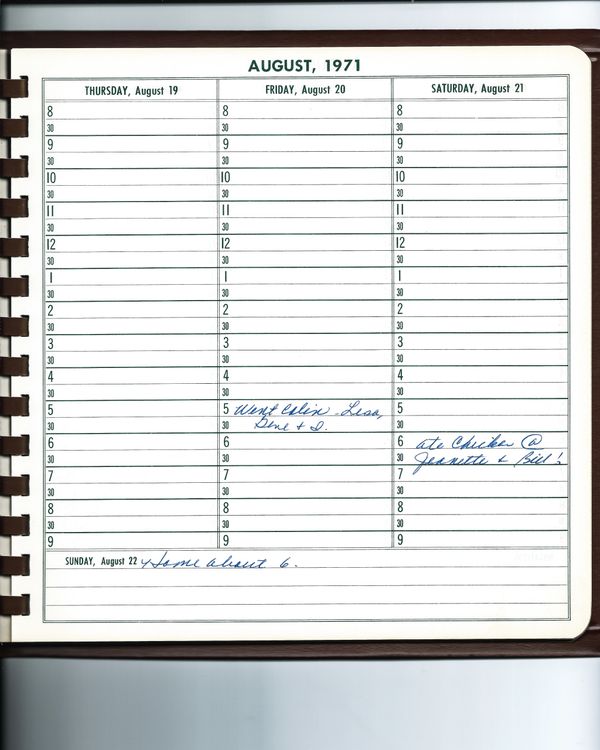 AUGUST, 1971
THURSDAY, August 19
8
30
9
30
10
30
11
30
12
30
1
30
2
30
3
30
4
30
5
30
6
30
7
30
8
30
9
FRIDAY, August 20
8
30
9
30
10
30
11
30
12
30
1
30
2
30
3
30
4
30
5 Went - Lesa,
30 Gene + I.
6
30
7
30
8
30
9
SATURDAY, August 21
8
30
9
30
10
30
11
30
12
30
1
30
2
30
3
30
4
30
5
30
6 ate Chicken @
30 Jeanette & Bill's
7
30
8
30
9
SUNDAY, August 22 Home about 6.